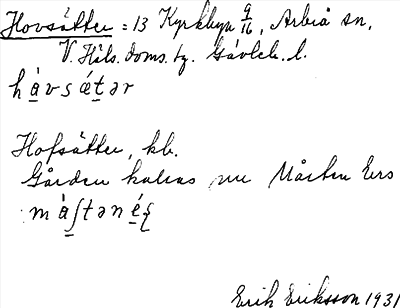 Hovsätter = 13 Kyrkbyn 9/16, Arbrå sn,
V. Häls. doms. tg. Gävleb. l.
hàvsǽtər
Hofsätter, kb.
Gården kallas nu Mårten Ers
Erik Eriksson 1931